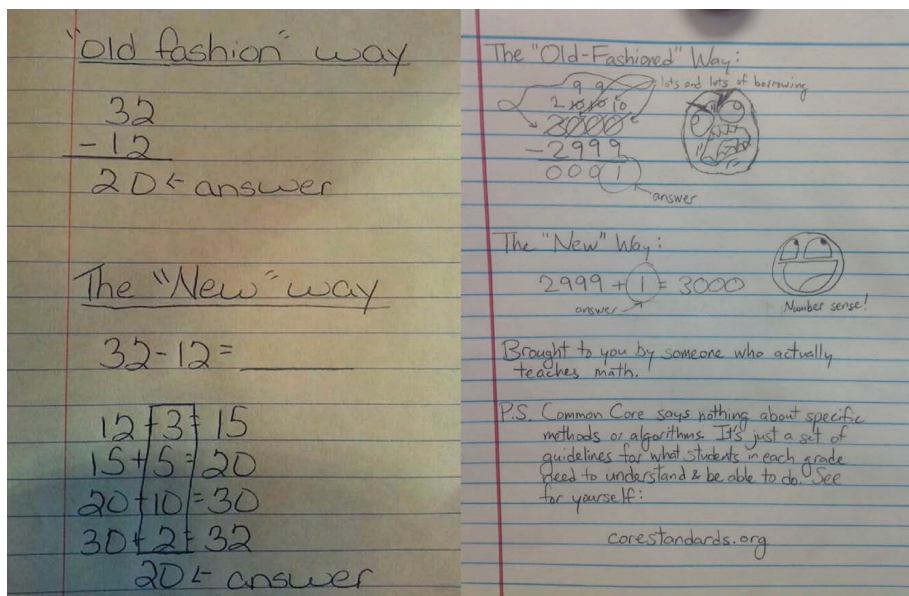 "Old fashion" way
32
-12
20 ← answer
The "New" way
32-12= ________
12+3=15
15+5=20
20+10=30
30+2=32
20 ← answer
The "Old-Fashioned" Way:
lots and lots of borrowing
9 9
2 10 10 10
3000
- 2999
0001
answer
The "New" Way:
2999 + 1 = 3000
answer
Number sense!
Brought to you by someone who actually
teaches math.
P.S. Common Core says nothing about specific
methods or algorithms. It's just a set of
guidelines for what students in each grade
need to understand & be able to do. See
for yourself:
corestandards.org